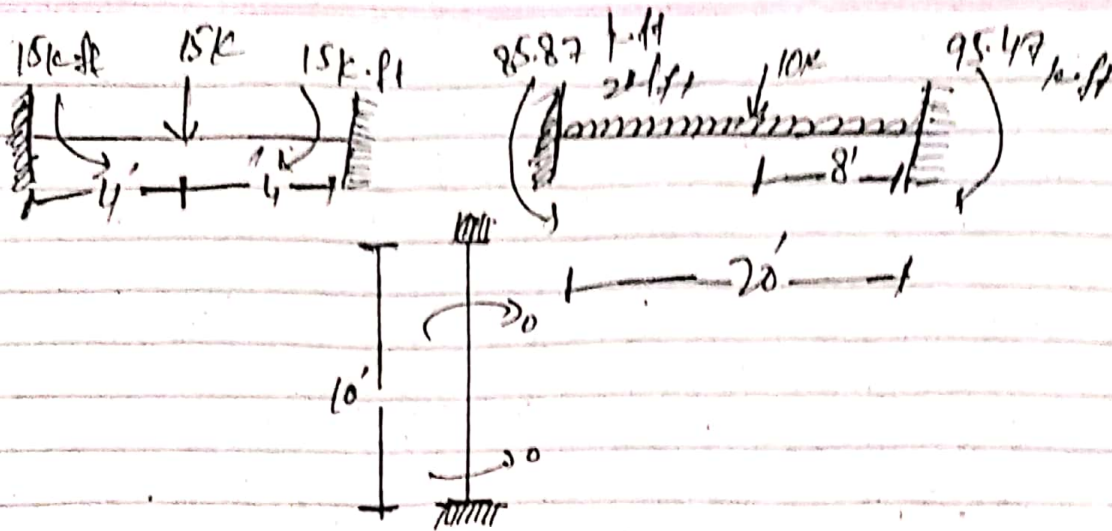 15k.ft 15k 15k.ft 85.87 k.ft 2k/ft 10k 95.47 k.ft
4' 4' 8'
20'
0
10'
0